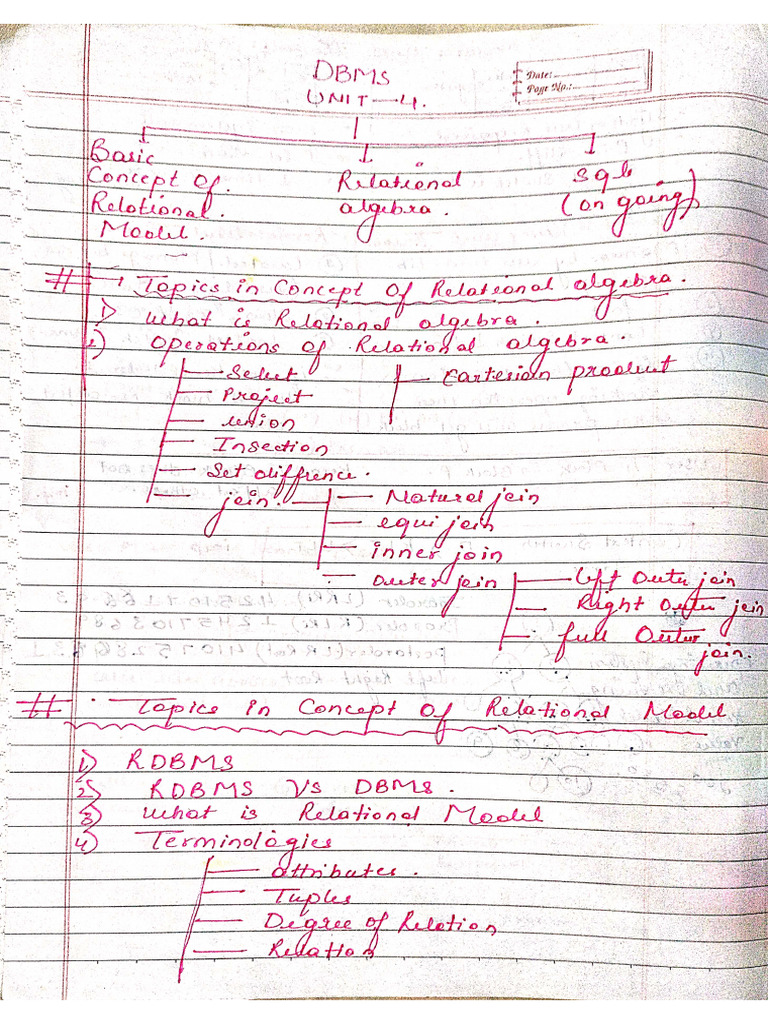 DBMS
UNIT-4.
Date:
Page No.:
Basic Concept Of. Relotional. Model.
Relational algebra.
Sql (on going)
# → Topics in Concept Of Relational algebra.
1) what is Relational algebra.
2) Operations of Relational algebra.
Select
Project
union
Insection
Set diffrence.
join.
Cartesian product
Natural join
equi join
inner join
outer join
left Outer join
Right Outer join
full Outer join.
# Topics in Concept Of Relational Model
1) RDBMS
2) RDBMS VS DBMS.
3) what is Relational Model
4) Terminologies
attributes.
Tuples
Degree of Relation
Relation